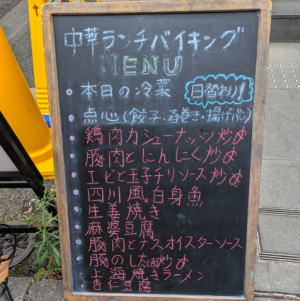 中華ランチバイキング
MENU
本日の冷菜
日替わり!
点心(餃子・春巻き・揚げパン)
鶏肉カシューナッツ炒め
豚肉とにんにく炒め
エビと玉子チリソース炒め
四川風白身魚
生姜焼き
麻婆豆腐
豚肉とナスオイスターソース
豚の炒め
上海焼きラーメン
杏仁豆腐